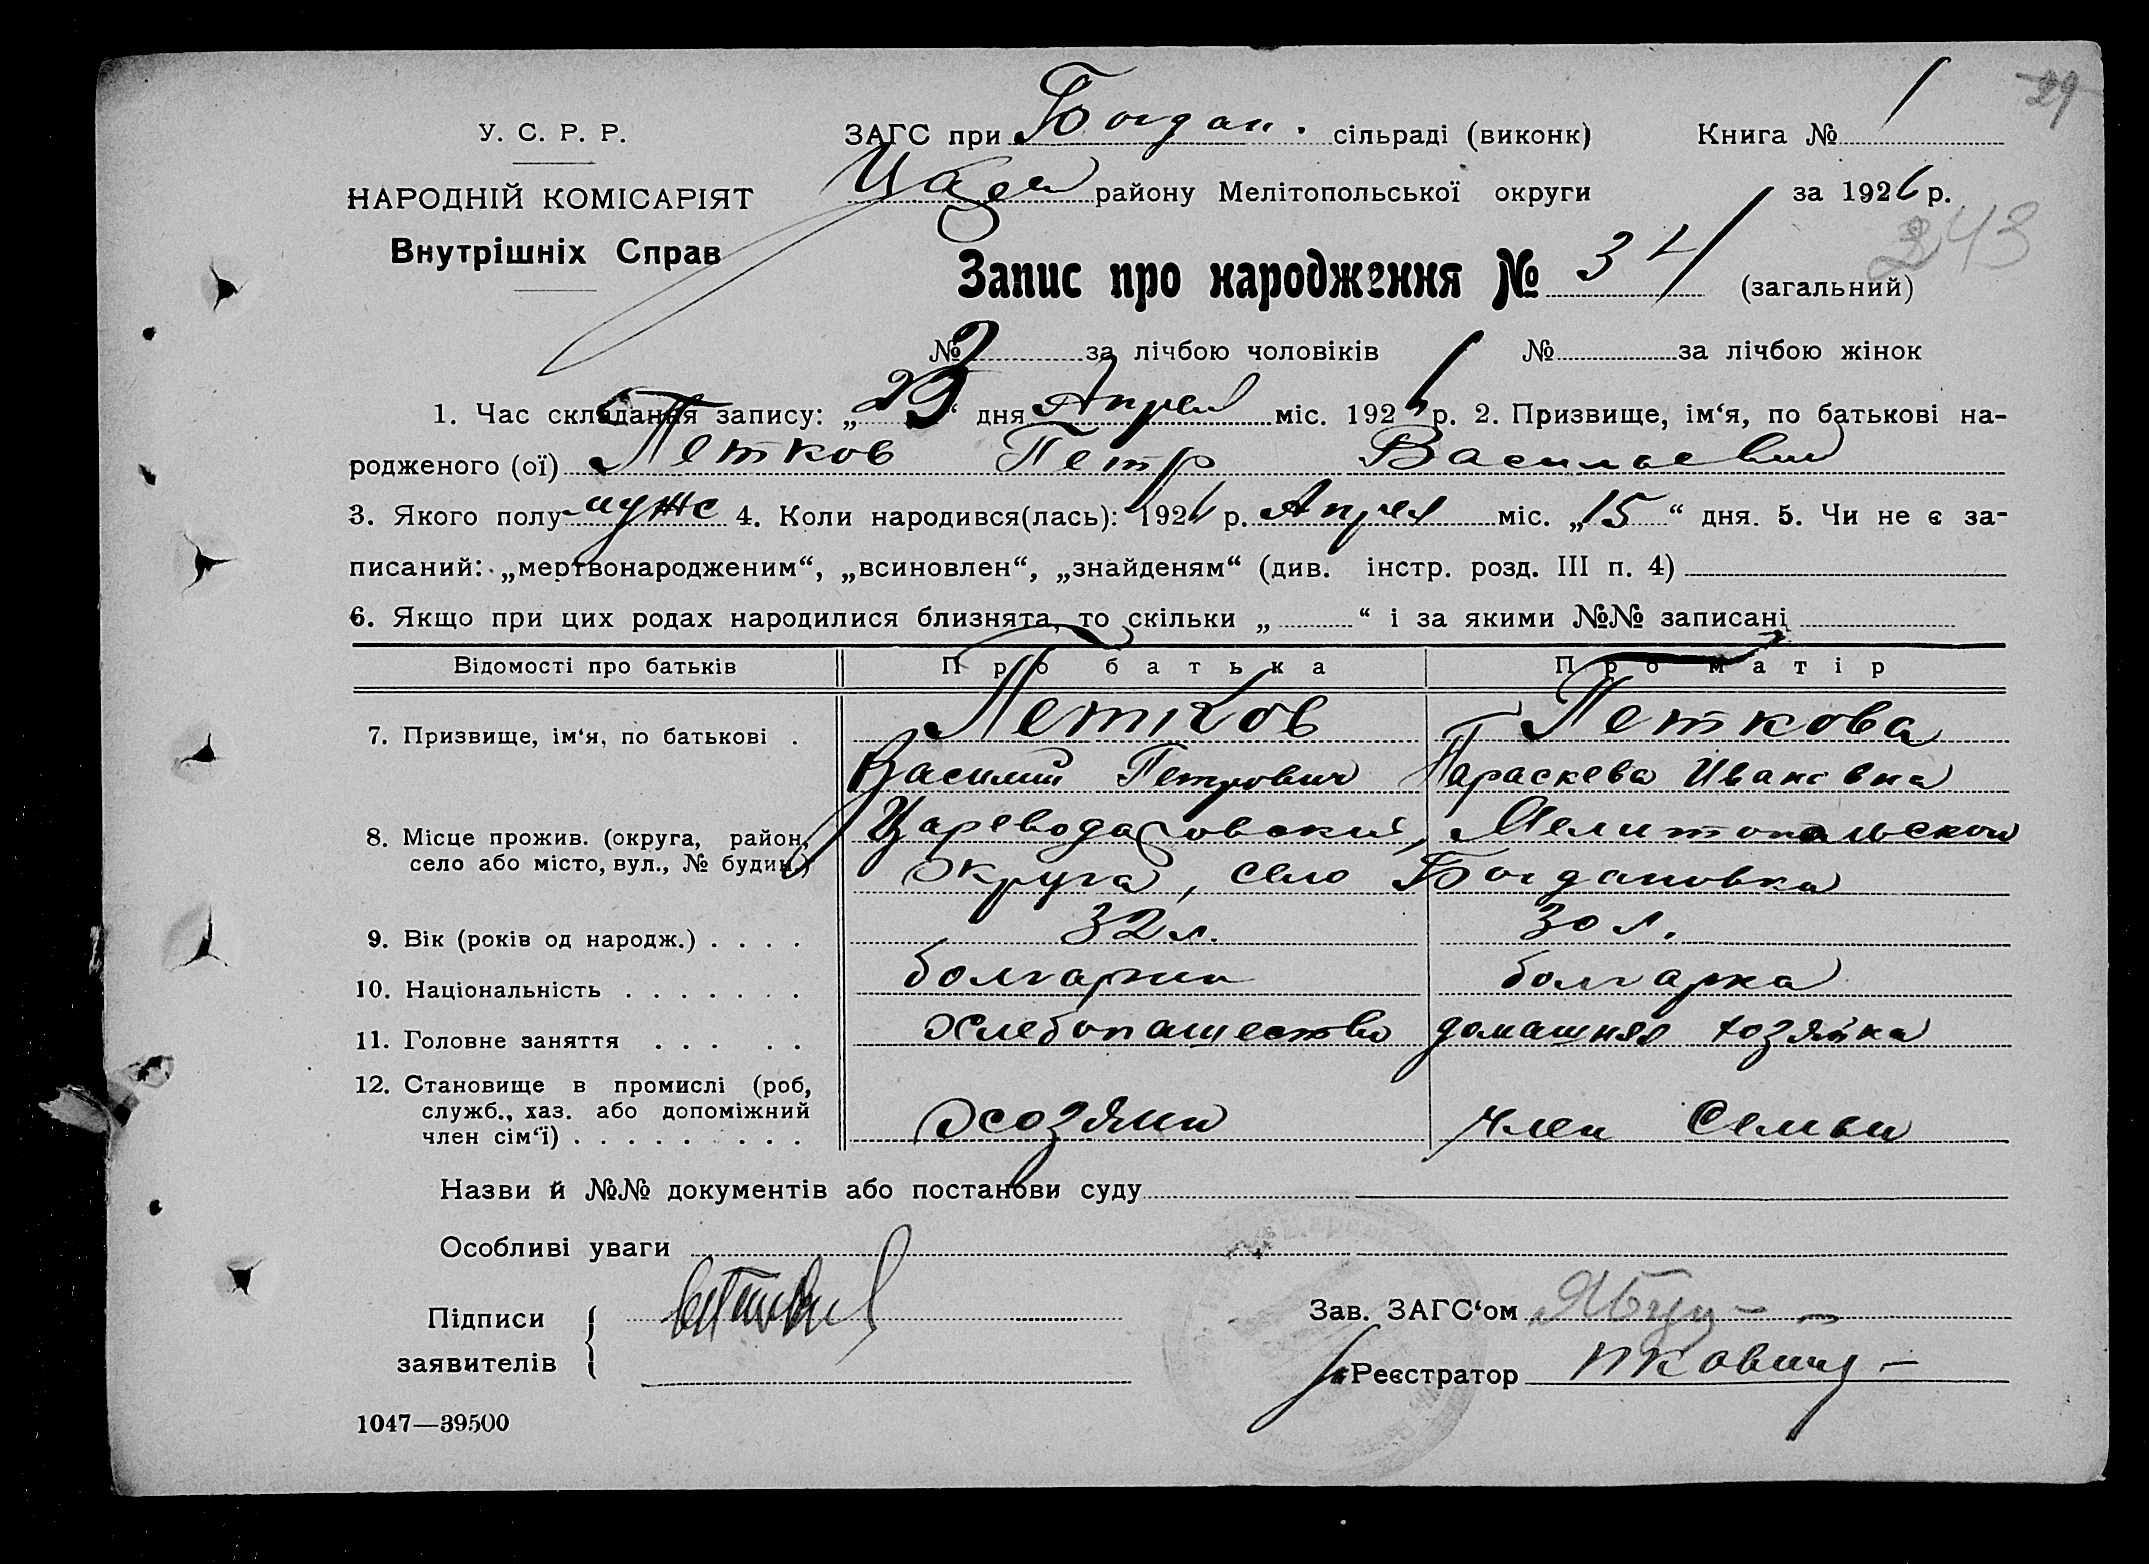 29
У. С. Р. Р.
ЗАГС при Богдан. сільраді (виконк) Книга № 1
НАРОДНІЙ КОМІСАРІЯТ
району Мелітопольської округи за 1926 р.
Внутрішніх Справ
243
Запис про народження № 34 (загальний)
№ за лічбою чоловіків № за лічбою жінок
1. Час складання запису: „ 23 “ дня Апрел міс. 1926 р. 2. Призвище, ім‘я, по батькові на-
родженого (ої) Петков Петр Васильевич
3. Якого полу муж 4. Коли народився(лась): 1926 р. Апрел міс. „ 15 “ дня. 5. Чи не є за-
писаний: „мертвонародженим“, „всиновлен“, „знайденям“ (див. інстр. розд. III п. 4)
6. Якщо при цих родах народилися близнята, то скільки „ “ і за якими №№ записані
Відомості про батьків Про батька Про матір
7. Призвище, ім‘я, по батькові . Петков Петкова
Василий Петрович Параскева Ивановна
8. Місце прожив. (округа, район, Цареводаровский, Мелитопольской
село або місто, вул., № будин.) Округа, село Богдановка
9. Вік (років од народж.) . . . . 32 л. 30 л.
10. Національність . . . . . . . болгарин болгарка
11. Головне заняття . . . . . Хлебопашество домашняя хозяйка
12. Становище в промислі (роб,
служб., хаз. або допоміжний
член сім‘ї) . . . . . . . . . Хозяин член Семьи
Назви й №№ документів або постанови суду
Особливі уваги
Підписи
заявителів
Зав. ЗАГС‘ом
Реєстратор
1047—39500